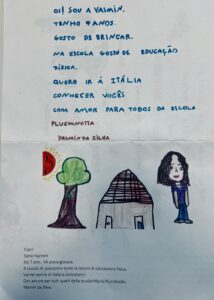 OI! SOU A YASMIN.
TENHO 7 ANOS.
GOSTO DE BRINCAR.
NA ESCOLA GOSTO DE EDUCAÇÃO
FÍSICA.
QUERO IR Á ITÁLIA
CONHECER VOCÊS
COM AMOR PARA TODOS DA ESCOLA
PLUCHINOTTA
YASMIN DA SILVA
Ciao!
Sono Yasmin!
Ho 7 anni. Mi piace giocare.
A scuola mi piacciono tanto le lezioni di educazione fisica.
Vorrei venire in Italia a conoscervi.
Con amore per tutti quelli della scuola Maria Pluchinotta.
Yasmin da Silva.